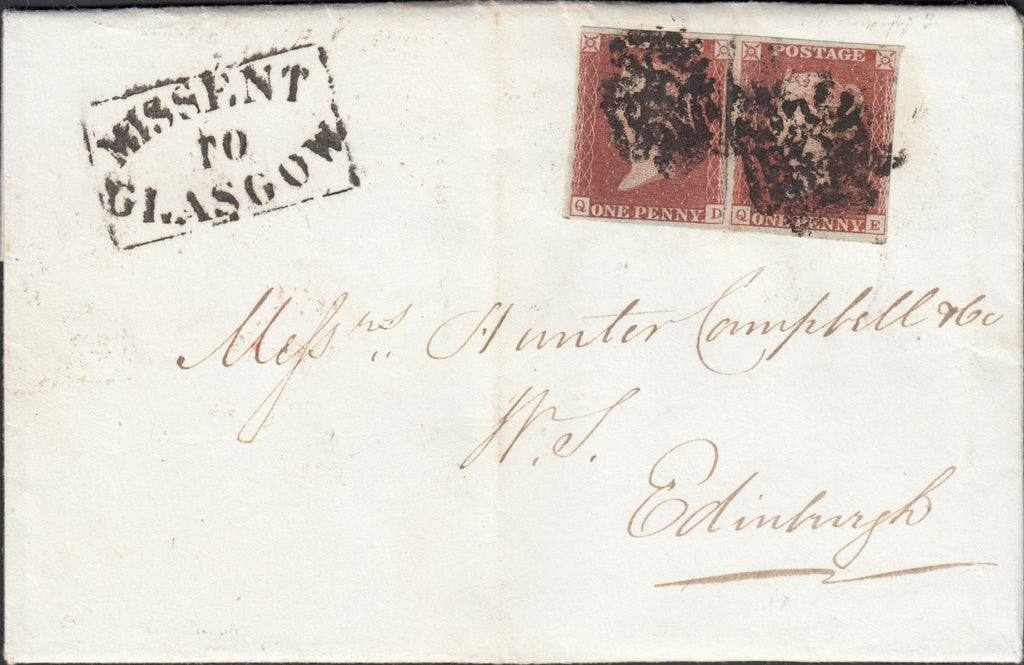 MISSENT
TO
GLASGOW
POSTAGE
Q ONE PENNY D
Q ONE PENNY E
Messrs. Hunter Campbell & Co
W.S.
Edinburgh